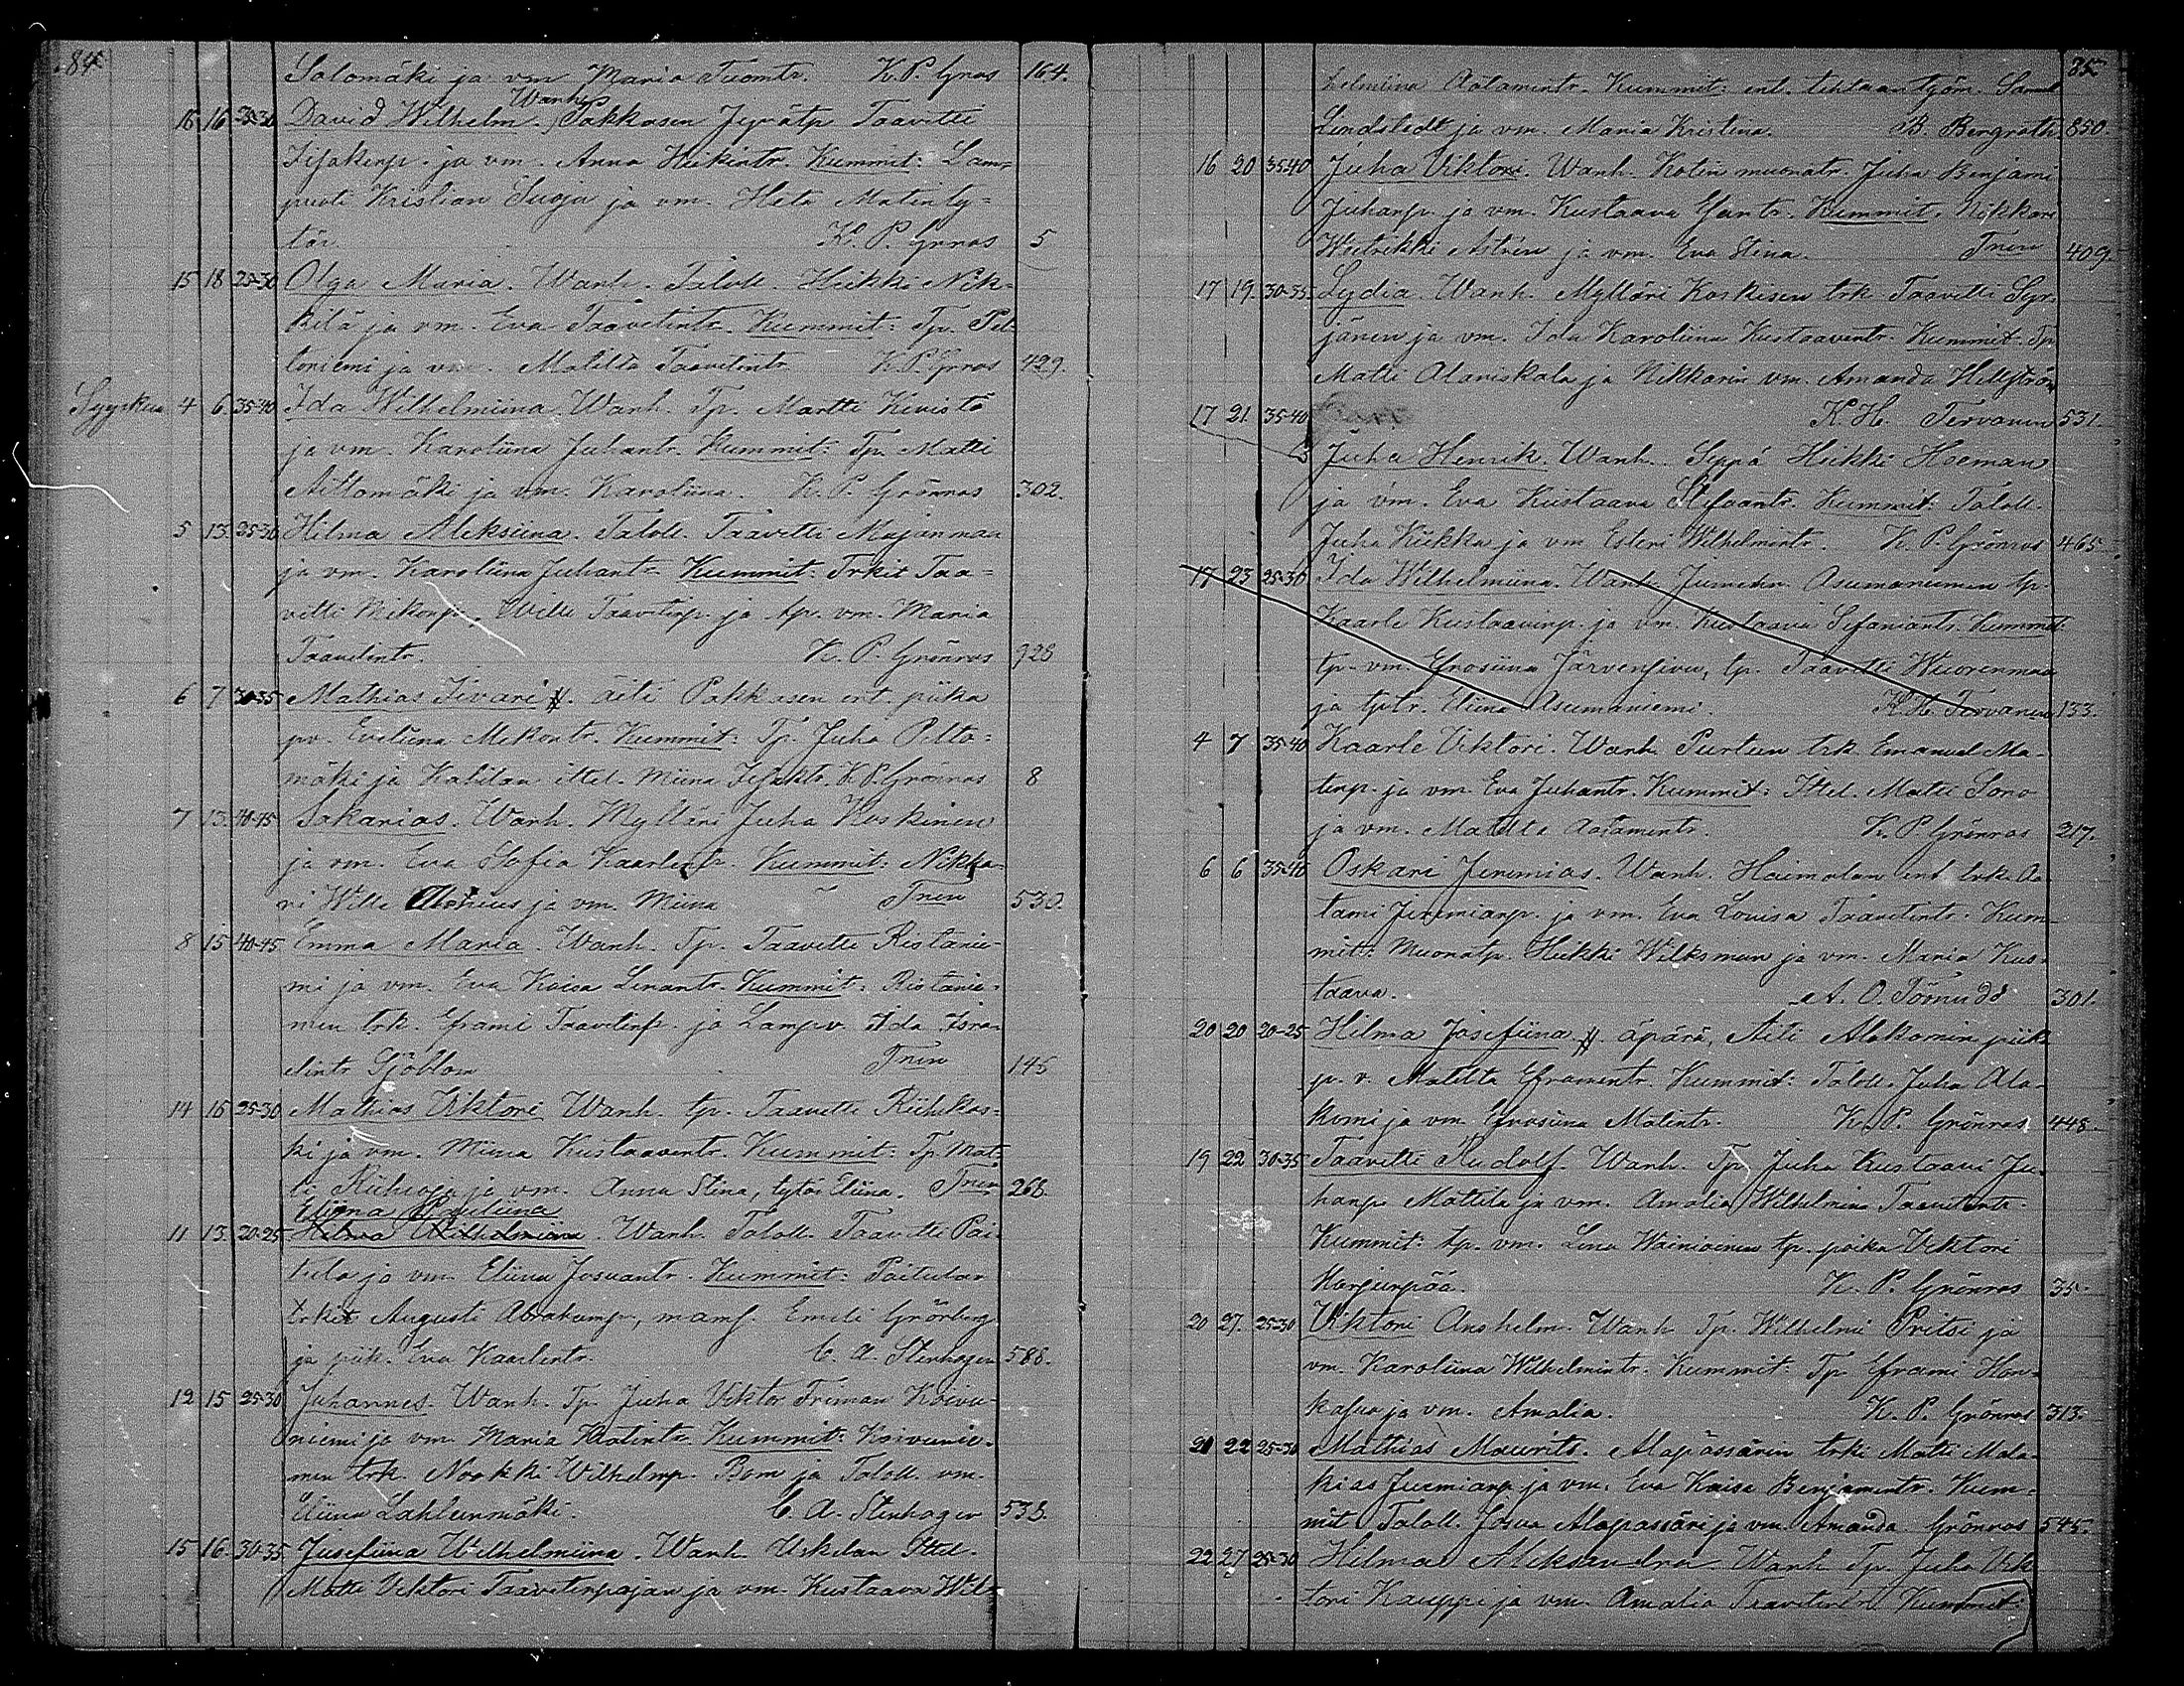 84.
Salomäki ja vm Maria Tuomtr. K. P. Grnos 164.
Wanh.
16 16 25-30 David Wilhelm. Pakkasen Jyvätp Taavetti
Iisakinp. ja vm. Anna Heikintr. Kummit: Lam-
puoti Kristian Suoja ja vm. Heta Matinty-
tär. K. P. Grnros 5
15 18 25-30 Olga Maria. Wanh. Taloll. Heikki Nik-
kilä ja vm. Eva Taavetintr. Kummit: Tp. Pel-
toniemi ja vm. Matilda Taavetintr. K. P. Grnros 429.
Syyskuu 4 6 35-40 Ida Wilhelmiina. Wanh. Tp. Martti Kivistö
ja vm. Karoliina Juhantr. Kummit: Tp. Matti
Aittomäki ja vm. Karoliina. K. P. Grönros 302.
5 13. 25-30 Hilma Aleksiina. Taloll. Taavetti Majanmaa
ja vm. Karoliina Juhantr. Kummit: Trkit Taa-
vetti Mikonp., Wille Taavetinp. ja tp. vm. Maria
Taavetintr. K. P. Grönros 928
6 7 30-35 Mathias Iivari. äiti Pakkasen ent. piika
pv. Eveliina Mikontr. Kummit: Tp. Juha Pelto-
mäki ja Kahilan ittel. Miina Iisaktr. K. P. Grönros 8
7 13. 40-45 Sakarias. Wanh. Mylläri Juha Koskinen
ja vm. Eva Stofia Kaarlentr. Kummit: Nikka-
ri Wille Alenius ja vm. Miina Tnen 530.
8 15 40-45 Emma Maria. Wanh. Tp. Taavetti Ristanie-
mi ja vm. Eva Kaisa Linantr. Kummit: Ristanie-
men trk. Eframi Taavetinp. ja Lampv. Ida Isra-
elintr Sjöblom Tnen 145
14 16 25-30 Mathias Viktori Wanh. tp. Taavetti Riihikos-
ki ja vm. Miina Kustaaventr. Kummit: Tp. Mat-
ti Riihioja ja vm. Anna Stina, tytär Eliina. Tnen 268
Eliina Pauliina
11 13. 20-25 Hilma Wilhelmiina. Wanh. Taloll. Taavetti Pai-
tula ja vm. Eliina Josuantr. Kummit: Paitulan
trkit Augusti Abrahamp., mams. Emeli Grönberg
ja piik. Eva Kaarlentr. C. A. Stenhagen 588.
12 15 25-30 Juhannes. Wanh. Tp. Juha Viktor Friman Koivu-
niemi ja vm. Maria Matintr. Kummit: Koivunie-
men trk. Nookki Wilhelmp. Bom ja Taloll. vm.
Eliina Lahteenmäki. C. A. Stenhagen 538.
15 16 30-35 Josefiina Wilhelmiina. Wanh. Uskilan Ittel.
Matti Viktori Taavetinpojan ja vm. Kustaava Wil-
85
helmiina Aatamintr. Kummit: ent. tehtaan työm. Samuel
Lindstedt ja vm. Maria Kristina. B. Bergroth 850.
16 20 35-40 Juha Viktori. Wanh. Kotin muonatr. Juha Benjami
Juhanp. ja vm. Kustaava Efantr. Kummit. Nikkari
Weetrikki Astrén ja vm. Eva Stina. Tnen 409.
17 19. 30-35 Lydia. Wanh. Mylläri Koskisen trk Taavetti Syr-
jänen ja vm. Ida Karoliina Kustaaventr. Kummit: Tp
Matti Alaniskala ja Nikkarin vm. Amanda Hellström
K. H. Tervanen 531.
17 21. 35-40 Juha Henrik. Wanh. Seppä Heikki Hoeman
ja vm. Eva Kustaava Stefaantr. Kummit: Taloll.
Juha Kiikka ja vm Esteri Wilhelmintr. K. P. Grönros 465
17 23 25-30 Ida Wilhelmiina. Wanh. Asumaniemen tp.
Kaarle Kustaavinp. ja vm. Kustaava Sefaniantr. Kummit:
tp. vm. Efrosiina Järvensivu, tp. Taavetti Wuorenmaa
ja tptr. Eliina Asumaniemi. K. H. Tervanen 133.
4 7 35-40 Kaarle Viktori. Wanh. Purtun trk. Emanuel Ma-
tinp. ja vm. Eva Juhantr. Kummit: Ittel. Matti Soro
ja vm. Matilta Aatamintr. K. P. Grönros 217.
6 6 35-40 Oskari Jeremias. Wanh. Haimalan ent. trk. Aa-
tami Jeremianp. ja vm. Eva Lovisa Taavetintr. Kum-
mit: Muonatp. Heikki Wilksman ja vm. Maria Kus-
taava. A. O. Törnudd 301.
20 20 20-25 Hilma Josefiina. äpärä, Äiti Alakomin piik.
p. v. Matilta Eframintr. Kummit: Taloll. Juha Ala-
komi ja vm. Efrosiina Matintr. K. P. Grönros 448.
19 22 30-35 Taavetti Rudolf. Wanh. Tp. Juha Kustaavi Ju-
hanp. Mattila ja vm. Amalia Wilhelmina Taavetintr.
Kummit: tp. vm. Lena Wainioinen tp. poika Viktori
Harjunpää. K. P. Grönros 35.
20 27. 25-30 Viktori Anshelm. Wanh. Tp. Wilhelmi Pritsi ja
vm. Karoliina Wilhelmintr. Kummit: Tp. Eframi Hon-
kasuo ja vm. Amalia. K. P. Grönros 313.
21 22 25-30 Mathias Maurits. Alapässärin trki Matti Mala-
kias Jeremianp. ja vm. Eva Kaisa Benjamintr. Kum-
mit. Taloll. Josua Alapässäri ja vm. Amanda. Grönros 545.
22 27 25-30 Hilma Aleksandra Wanh. Tp. Juha Vik-
tori Kauppi ja vm. Amalia Taavetintr. Kummit: